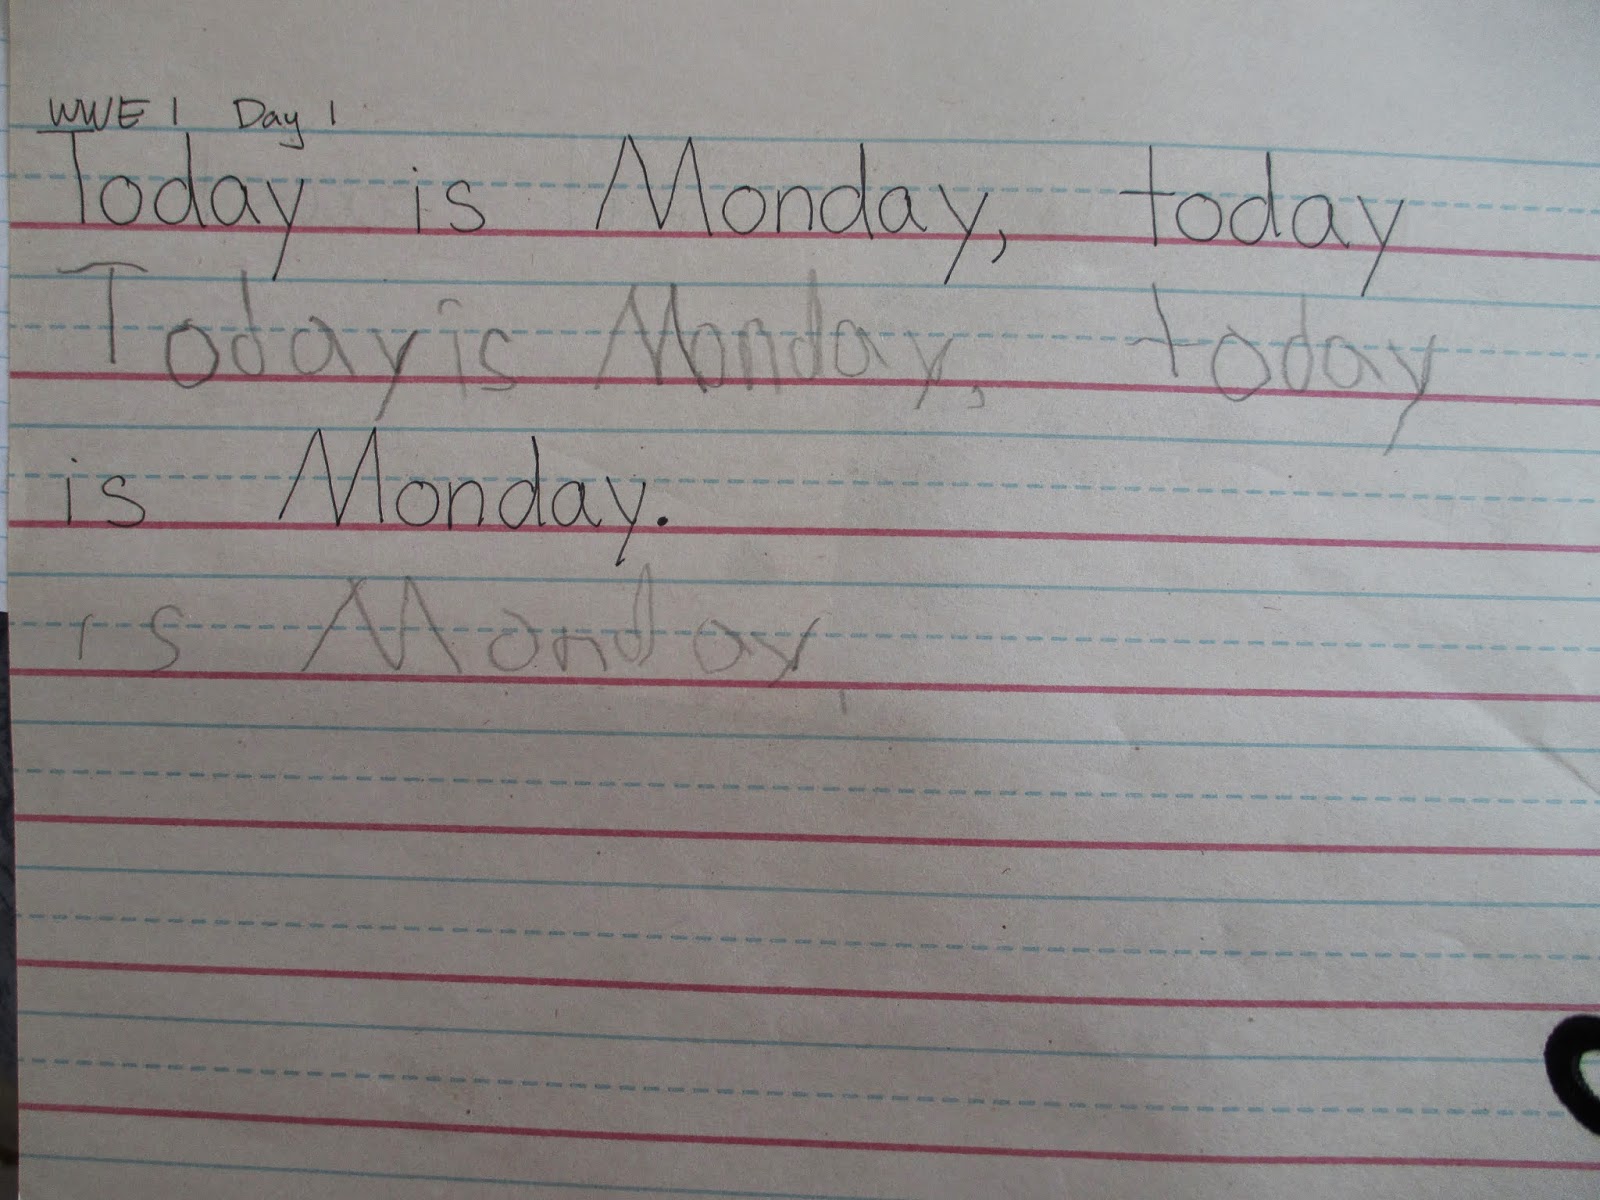 WWE 1 Day 1
Today is Monday, today
Today is Monday, today
is Monday.
is Monday,